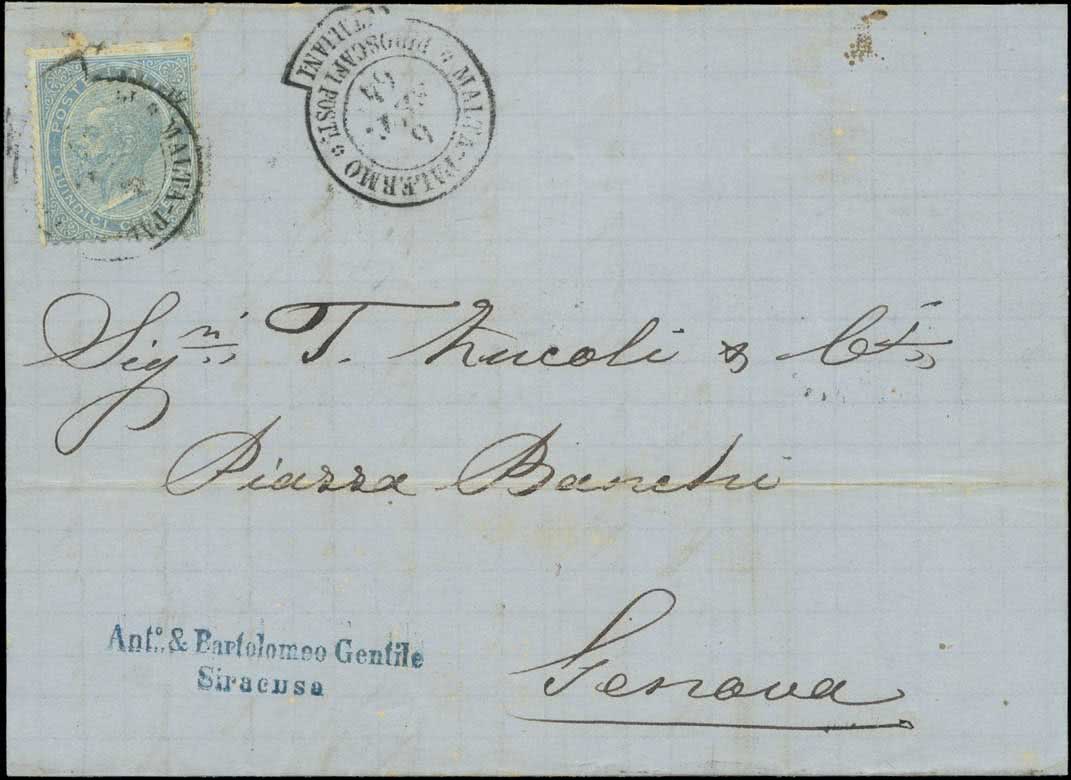 POSTE
QUINDICI C
MALTA-PAL
MALTA-PALERMO
PIROSCAFI POSTALI ITALIANI
Sig.ri T. Nucoli & C.
Piazza Banchi
Genova
Ant.º & Bartolomeo Gentile
Siracusa